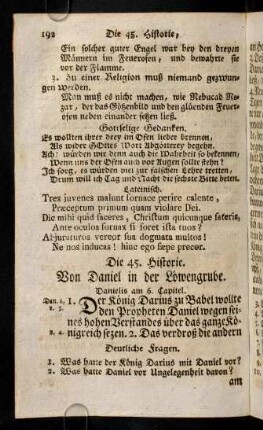 192 Die 45. Historie,
Ein solcher guter Engel war bey den dreyen
Männern im Feuerofen, und bewahrte sie
vor der Flamme.
3. Zu einer Religion muß niemand gezwun-
gen werden.
Man muß es nicht machen, wie Nebucad Ne-
zar, der das Götzenbild und den glüenden Feuer-
ofen neben einander setzen ließ.
Gottselige Gedanken.
Es wollten ihrer drey im Ofen lieber brennen,
Als wider GOttes Wort Abgötterey begehn.
Ach! würden wir denn auch die Wahrheit so bekennen,
Wenn uns der Ofen auch vor Augen sollte stehn?
Ich sorg, es würden viel zur falschen Lehre tretten,
Drum will ich Tag und Nacht die sechste Bitte beten.
Lateinisch.
Tres juvenes malunt fornace perire calente,
Præceptum primum quam violare Dei.
Die mihi quid faceres, Christum quicunque fateris,
Ante oculos fornax si foret ista tuos?
Abjuraturos vereor sua dogmata multos!
Ne nos inducas! hinc ego sæpe precor.
Die 45. Historie.
Von Daniel in der Löwengrube.
Danielis am 6. Capitel.
Dan. 6, 1. Der König Darius zu Babel wollte
v. 3. den Propheten Daniel wegen sei-
nes hohen Verstandes über das ganze Kö-
v. 4. nigreich sezen. 2. Das verdroß die andern
Deutliche Fragen.
1. Was hatte der König Darius mit Daniel vor?
2. Was hatte Daniel vor Ungelegenheit davon?
am